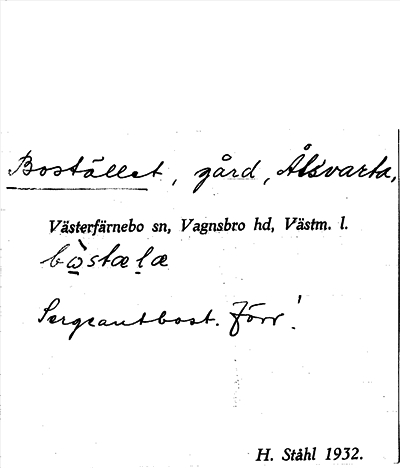 Bostället, gård, Åkvarta,
Västerfärnebo sn, Vagnsbro hd, Västm. l.
bὼstælæ
Sergeantbost. Förr!
H. Ståhl 1932.